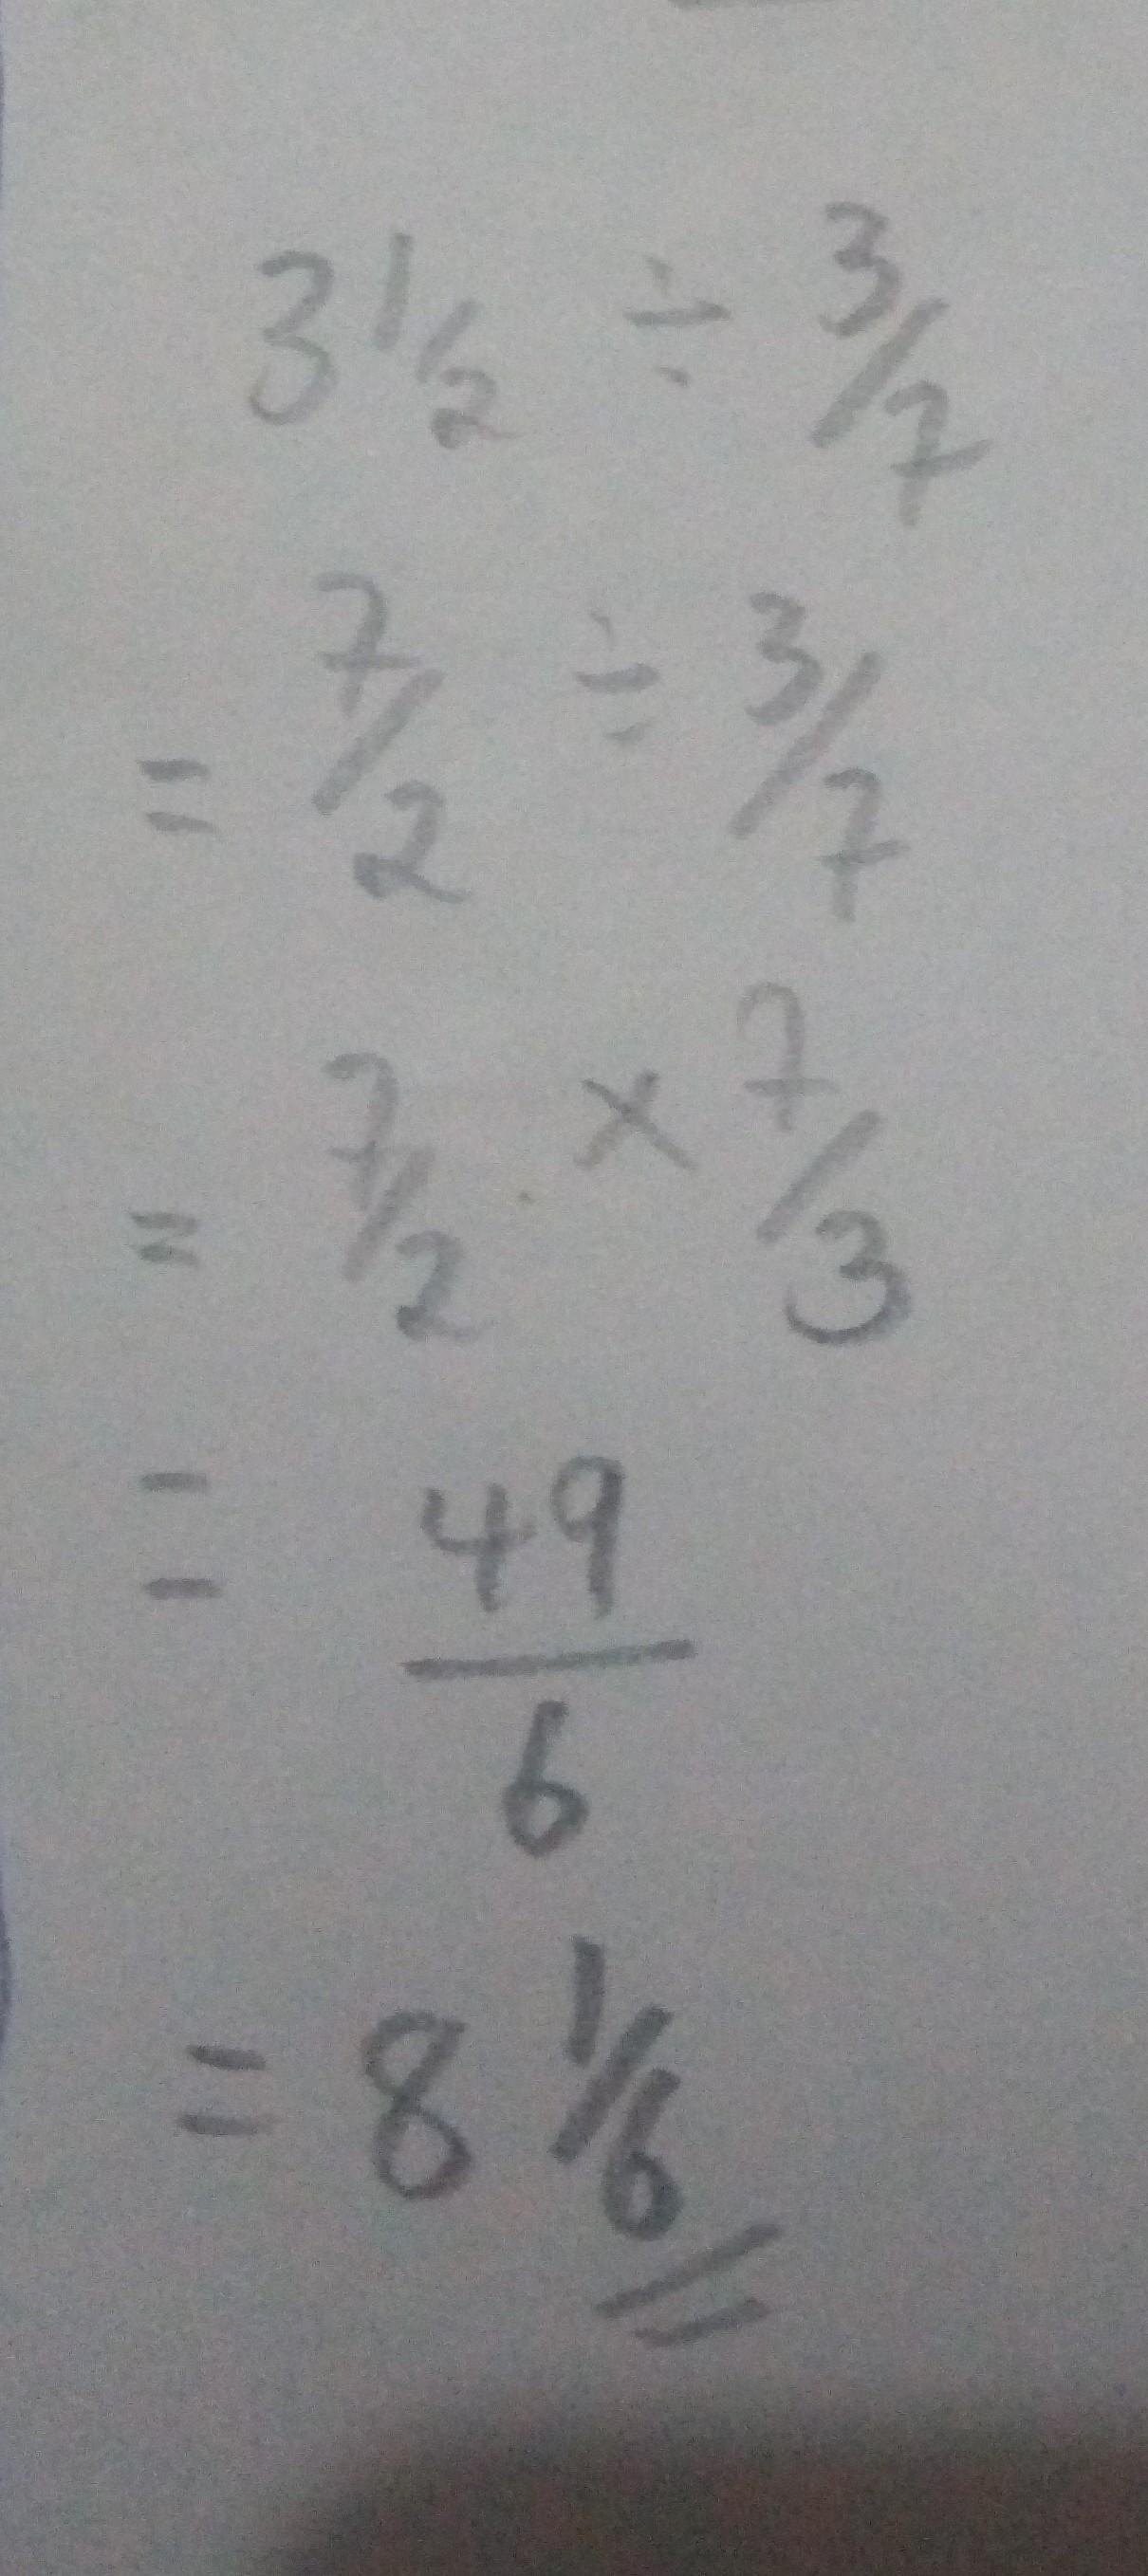 3 1/2 ÷ 3/7
= 7/2 ÷ 3/7
= 7/2 × 7/3
= 49/6
= 8 1/6